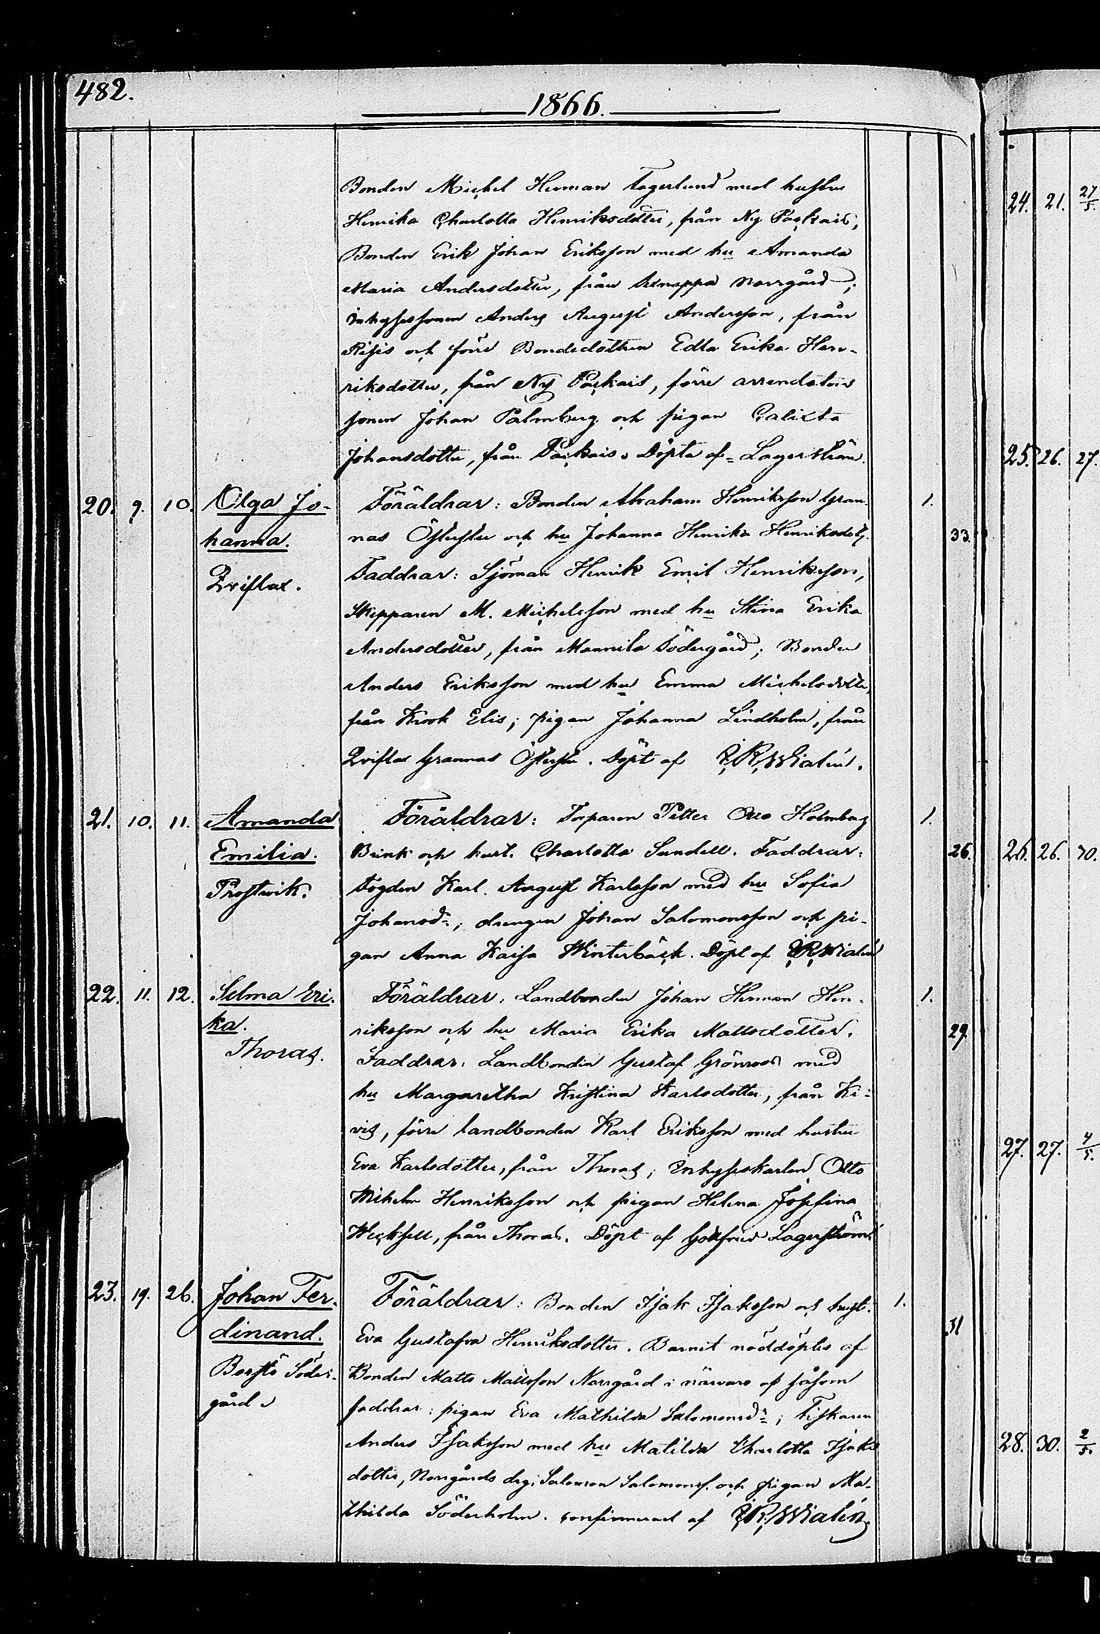 482.
1866.
Bonden Michel Herman Fagerlund med hustru
Henrika Charlotta Henriksdotter, från Ny Päckais,
Bonden Erik Johan Eriksson med hu Amanda
Maria Andersdotter, från Norrgård;
Inhysessonen Anders August Andersson, från
Risis och förre Bondedottren Edla Erika Hen-
riksdotter, från Ny Päckais, förre arrendators
sonen Johan Palmberg och pigan Calixta
Johansdotter, från Päckais. Döpte af Lagerström.
20. 9. 10. Olga Jo- Föräldrar: Bonden Abraham Henriksson Gran- 1.
hanna. nas Östester och hu Johanna Henrika Henriksdotr. 33.
Qviflax. Faddrar: Sjöman Henrik Emil Henriksson,
Skepparen M. Michelsson med hu Stina Erika
Andersdotter, från Mannila Södergård; Bonden
Anders Eriksson med hu Emma Michelsdotter,
från Krok Elis; pigan Johanna Lindholm, från
Qviflax Grannas Östester. Döpt af Walin.
21. 10. 11. Amanda Föräldrar: Torparen Petter Otto Holmberg 1.
Emilia. Brink och hust. Charlotta Sundell. Faddrar: 26.
Prostvik. Fogden Karl August Karlsson med hu Sofia
Johansdr; drengen Johan Salomonsson och pi-
gan Anna Kaisa Winterbäck. Döpt af Walin
22. 11. 12. Selma Eri- Föräldrar: Landbonden Johan Herman Hen- 1.
ka. riksson och hu Maria Erika Mattsdotter. 29.
Thoras. Faddrar: Landbonden Gustaf Grönroos med
hu Margaretha Kristina Karlsdotter, från Ki-
vis, förre landbonden Karl Eriksson med hustru
Eva Karlsdotter, från Thoras; inhyseskarlen Otto
Wilhelm Henriksson och pigan Helena Josefina
Wecksell, från Thoras. Döpt af Gottfried Lagerström
23. 19. 26. Johan Fer- Föräldrar: Bonden Isak Isaksson och hust. 1.
dinand. Eva Gustafva Henriksdotter. Barnet nöddöptes af 31
Borstö Söder- Bonden Matts Mattsson Norrgård i närvaro af såsom
gård. faddrar: pigan Eva Mathilda Salomonsdr; Fiskaren
Anders Isaksson med hu Matilda Charlotta Isaks
dotter, Norrgårds drg. Salomon Salomonss. och pigan Ma-
thilda Söderholm. confirmerad af Walin
24. 21. 27/5.
25. 26. 27.
26. 26. 30.
27. 27. 4/5.
28. 30. 2/5.